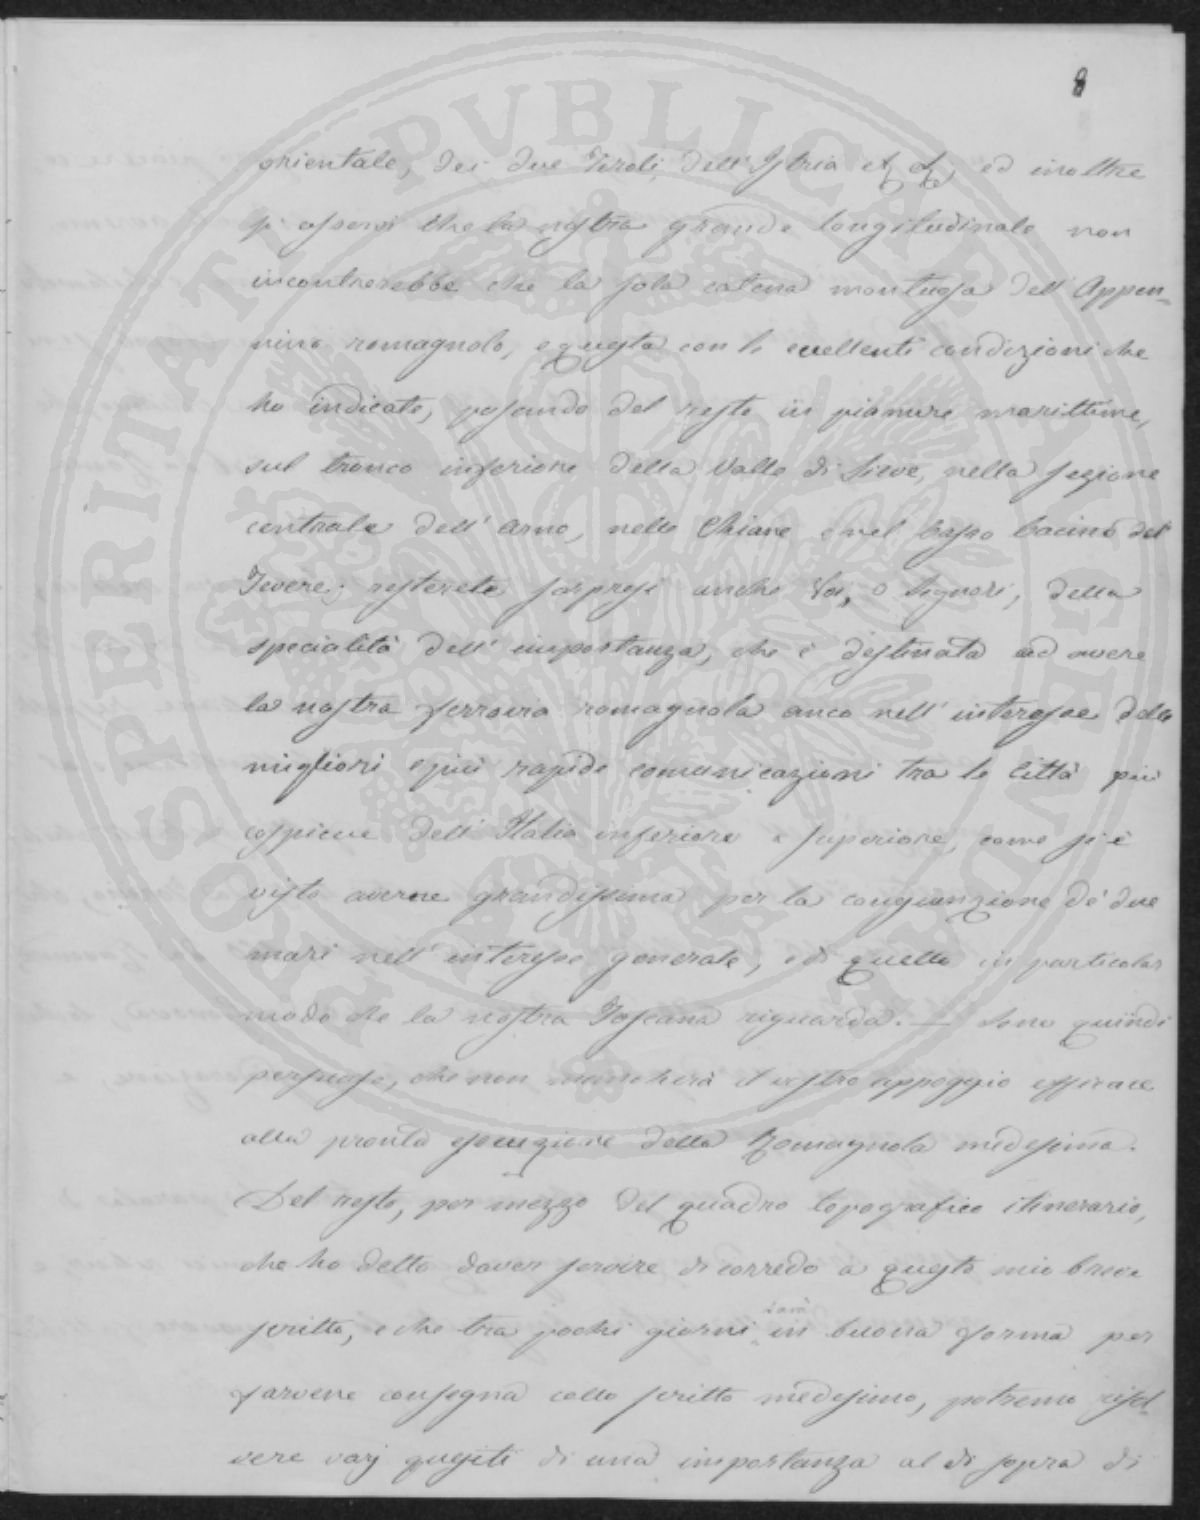 8
orientale, dei due Tiroli, dell'Istria etc etc, ed inoltre
si osservi che la nostra grande longitudinale non
incontrerebbe che la sola catena montuosa dell'Appen-
nino romagnolo, e questa con le eccellenti condizioni che
ho indicate, posando del resto in pianure marittime,
sul tronco inferiore della Valle di Sieve, nella sezione
centrale dell'Arno, nelle Chiane e nel basso bacino del
Tevere; resterete sorpresi anche Voi, o Signori, della
specialità dell'importanza, che è destinata ad avere
la nostra ferrovia romagnola anco nell'interesse delle
migliori e più rapide comunicazioni tra le città più
cospicue dell'Italia inferiore e superiore, come si è
visto averne grandissima per la congiunzione de' due
mari nell'interesse generale, e di quello in particolar
modo che la nostra Toscana riguarda. — Sono quindi
persuaso, che non mancherà il vostro appoggio efficace
alla pronta esecuzione della Romagnola medesima.
Del resto, per mezzo del quadro topografico itinerario,
che ho detto dover servire di corredo a questo mio breve
scritto, e che tra pochi giorni sarà in buona forma per
farvene consegna collo scritto medesimo, potremo risol-
vere varj quesiti di una importanza al di sopra di
PROSPERITATI PVBLICAE